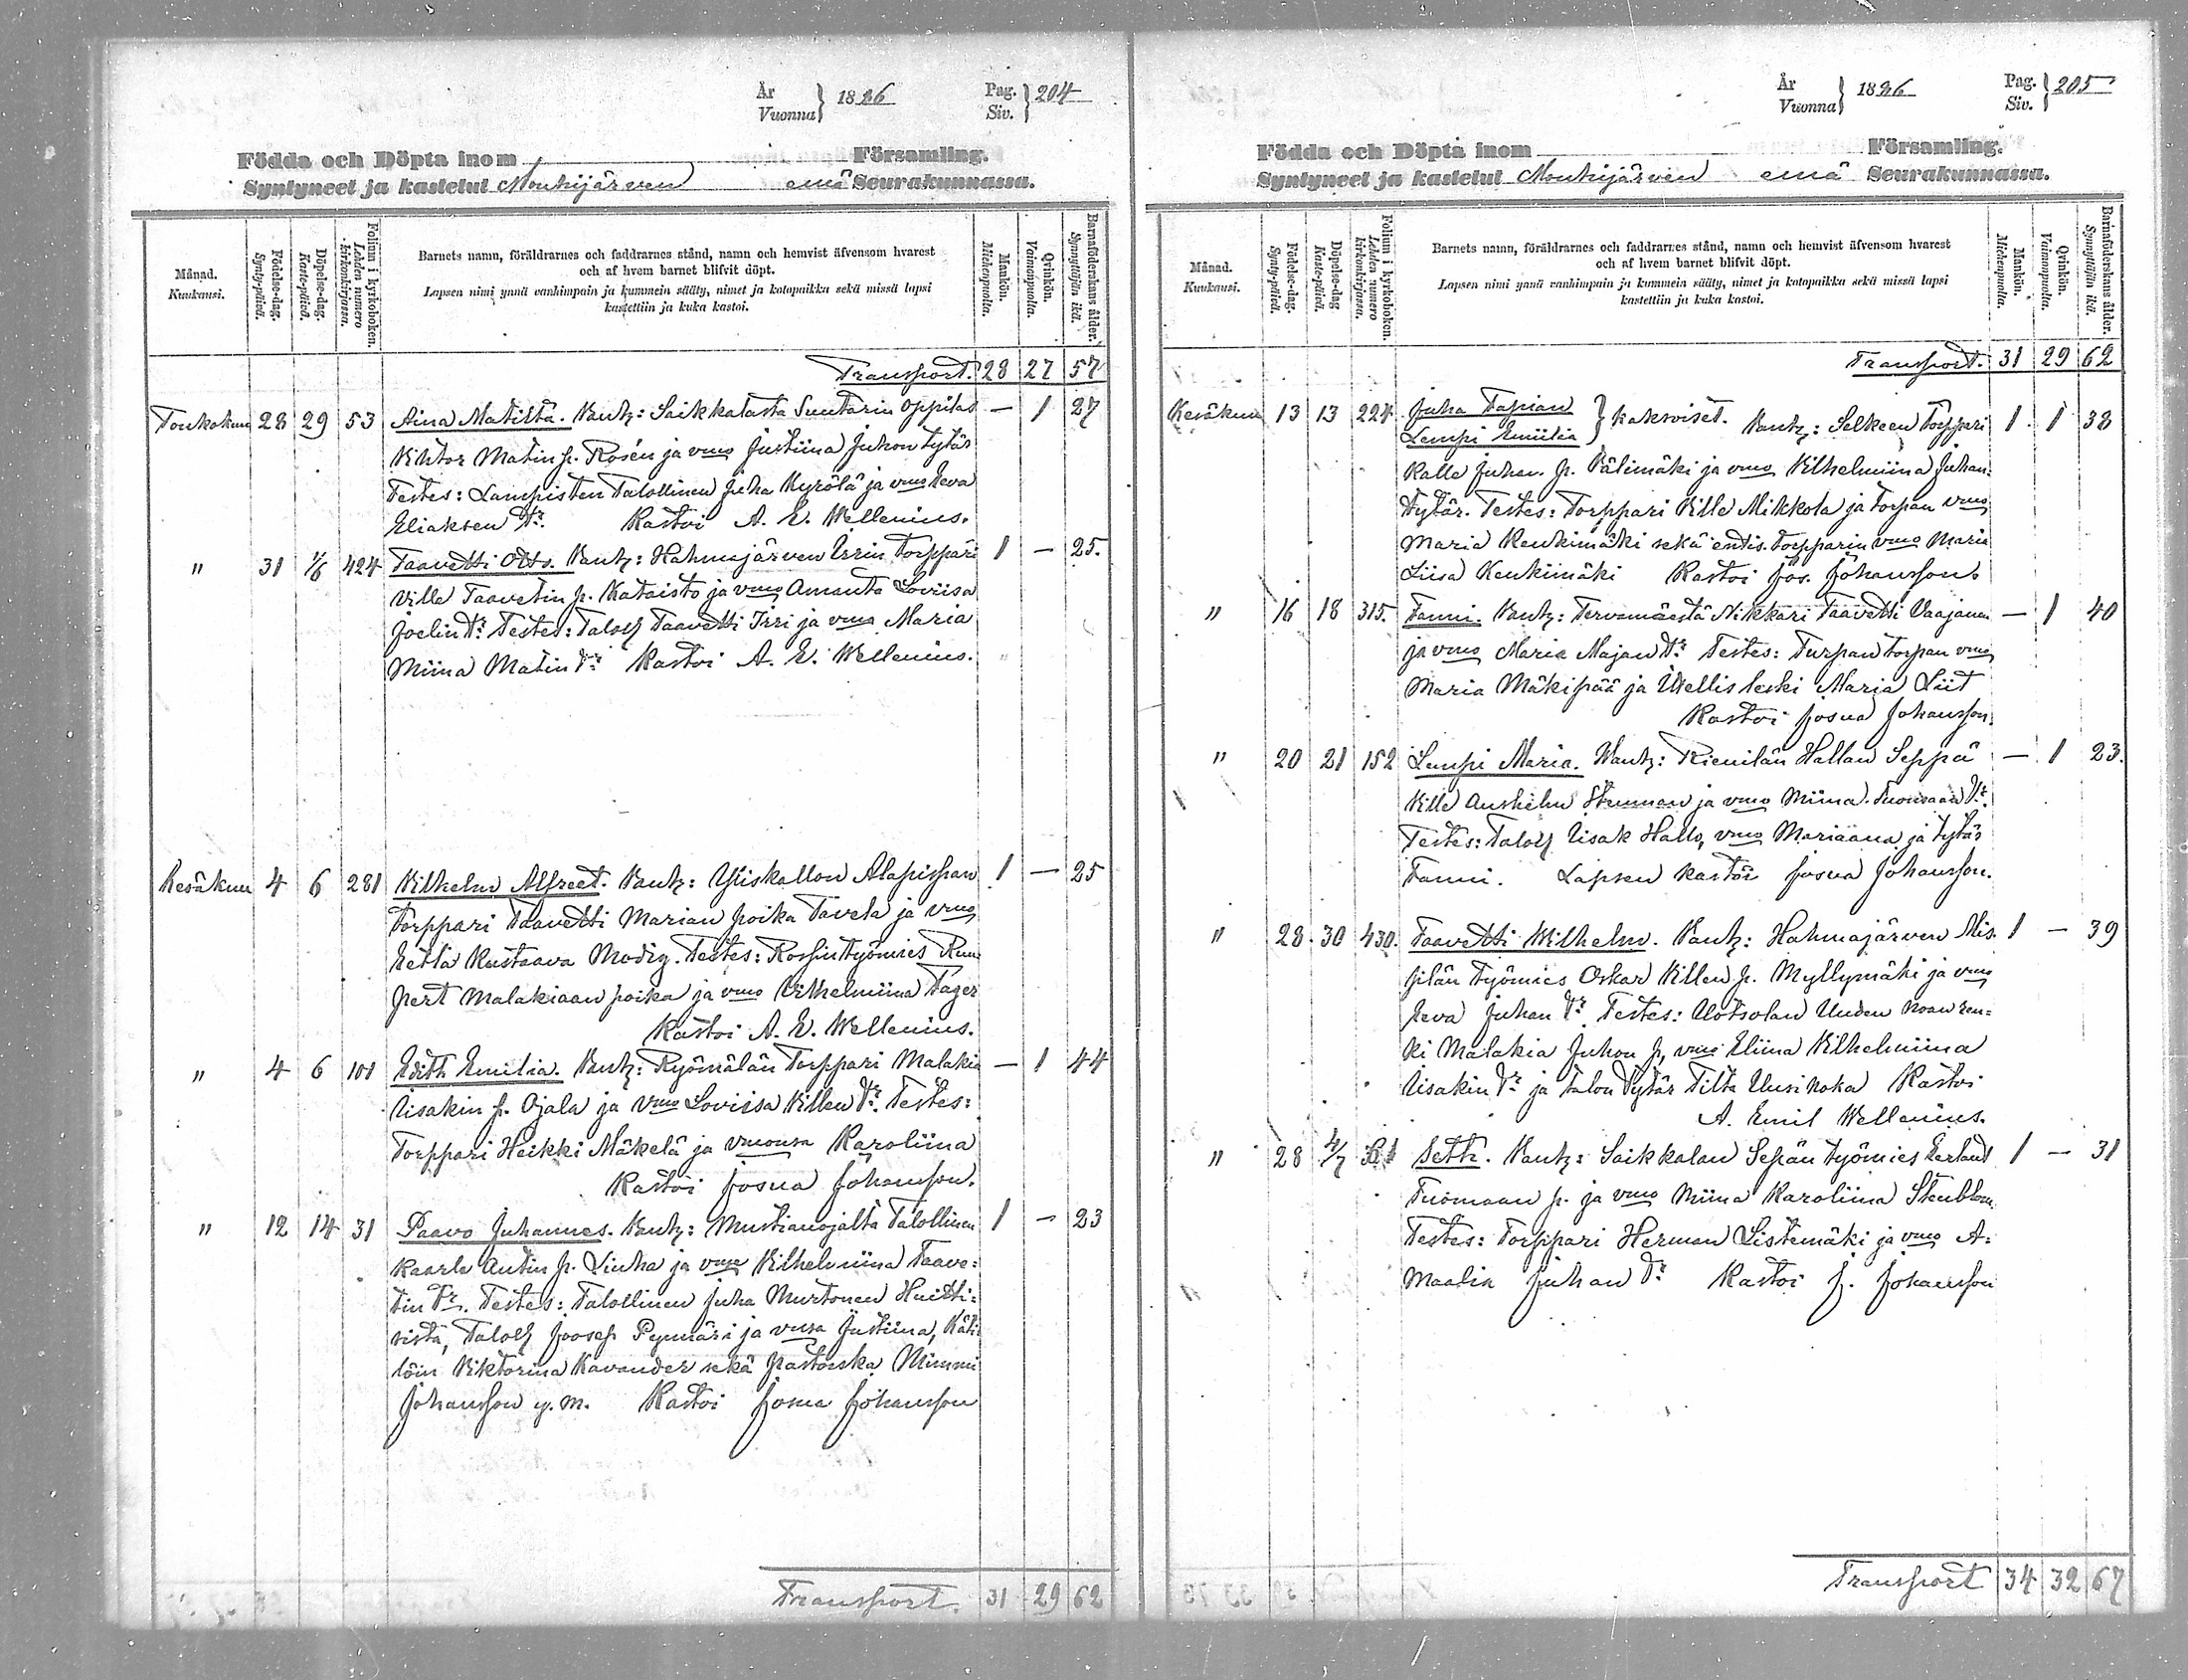 År
Vuonna } 1896 Pag.
Siv. } 204
Födda och Döpta inom Församling.
Syntyneet ja kastetut Mouhijärven emä Seurakunnassa.
Månad.
Kuukausi.
Födelse-dag.
Synty-päivä.
Döpelse-dag.
Kaste-päivä.
Folium i kyrkoboken.
Lehden numero kirkonkirjassa.
Barnets namn, föräldrarnes och faddrarnes stånd, namn och hemvist äfvensom hvarest
och af hvem barnet blifvit döpt.
Lapsen nimi ynnä vanhimpain ja kummein sääty, nimet ja kotopaikka sekä missä lapsi
kastettiin ja kuka kastoi.
Mankön.
Miehenpuolia.
Qvinkön.
Vaimonpuolia.
Barnaföderskans ålder.
Synnyttäjän ikä.
Transport. 28 27 57
Toukokuu 28 29 53 Aina Matilta. Vanh: Saikkalasta Suutarin oppilas — 1 27
Vihtor Matin p. Rosén ja vmo Justiina Juhon tytär
Testes: Lampisten Talollinen Juha Kyrölä ja vmo Eeva
Eliaksen tr. Kastoi A. E. Wellenius.
" 31 1/6 424 Taavetti Otto. Vanh: Hahmajärven Irrin Torppari 1 — 25.
Ville Taavetin p. Kataisto ja vmo Amanta Loviisa
Joelin tr. Testes: Taloll Taavetti Irri ja vmo Maria
Miina Matin tr. Kastoi A. E. Wellenius.
Kesäkuu 4 6 281 Vilhelm Alfreet. Vanh: Yliskallon Alapispan 1 — 25
Torppari Taavetti Marian poika Tavela ja vmo
Eetla Kustaava Modig. Testes: Rossin työmies Ruu
pert Malakiaan poika ja vmo Vilhelmiina Fager
Kastoi A. E. Wellenius.
" 4 6 101 Edith Emilia. Vanh: Ryömälän Torppari Malakia — 1 44
Iisakin p. Ojala ja vmo Loviisa Villen tr. Testes:
Torppari Heikki Mäkelä ja vmonsa Karoliina
Kastoi Josua Johansson.
" 12 14 31 Paavo Juhannes. Vanh: Mustianojalta Talollinen 1 — 23
Kaarle Antin p. Liuha ja vmo Vilhelmiina Taave=
tin tr. Testes: Talollinen Juha Murtonen Huitti=
sista, Taloll Joosep Pynnäri ja vmsa Justiina, Käti
löin Viktoriina Kavander sekä pastorska Mimmi
Johansson y. m. Kastoi Josua Johansson
Transport. 31 29 62
År
Vuonna } 1896 Pag.
Siv. } 205
Födda och Döpta inom Församling.
Syntyneet ja kastetut Mouhijärven emä Seurakunnassa.
Månad.
Kuukausi.
Födelse-dag.
Synty-päivä.
Döpelse-dag
Kaste-päivä.
Folium i kyrkoboken.
Lehden numero kirkonkirjassa.
Barnets namn, föräldrarnes och faddrarnes stånd, namn och hemvist äfvensom hvarest
och af hvem barnet blifvit döpt.
Lapsen nimi ynnä vanhimpain ja kummein sääty, nimet ja kotopaikka sekä missä lapsi
kastettiin ja kuka kastoi.
Mankön.
Miehenpuolia.
Qvinkön.
Vaimonpuolia.
Barnaföderskans ålder.
Synnyttäjän ikä.
Transport. 31 29 62
Kesäkuu 13 13 224 Juha Fabian
Lempi Emiilia } kaksoiset. Vanh: Selkeen Torppari 1 1 38
Kalle Juhan. p. Välimäki ja vmo Vilhelmiina Juhan=
tytär. Testes: Torppari Ville Mikkola ja torpan vmo
Maria Keukimäki sekä entis. torpparin vmo Maria
Liisa Keukimäki Kastoi Jos. Johansson.
" 16 18 315. Fanni. Vanh: Tervamäestä Nikkari Taavetti Vaajanen — 1 40
ja vmo Maria Majan tr. Testes: Turpan torpan vmo
Maria Mäkipää ja Itellis leski Maria Liit
Kastoi Josua Johansson.
" 20 21 152 Lempi Maria. Vanh: Rienilän Hallan Seppä — 1 23.
Ville Anshelm Stenman ja vmo Miina Tuomaan tr.
Testes: Taloll Iisak Hallo, vmo Mariaana ja tytär
Fanni. Lapsen kastoi Josua Johansson.
" 28. 30 430. Taavetti Wilhelm. Vanh: Hahmajärven Mis 1 — 39
pilän työmies Oskar Villen p. Myllymäki ja vmo
Eeva Juhan tr. Testes: Uotsolan Uuden noan ren=
ki Malakia Juhon p, vmo Eliina Vilhelmiina
Iisakin tr. ja talon tytär Tilta Uusinoka Kastoi
A. Emil Wellenius.
" 28 4/7 Seth. Vanh: Saikkalan Sepän työmies Eerlant 1 — 31
Tuomaan p. ja vmo Miina Karoliina Stenblom
Testes: Torppari Herman Listemäki ja vmo A=
maalia Juhan tr. Kastoi J. Johansson
Transport 34 32 67